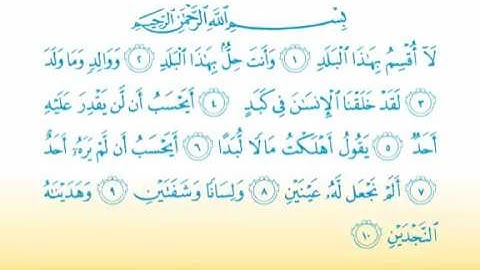 بِسْمِ ٱللَّهِ ٱلرَّحْمَٰنِ ٱلرَّحِيمِ
لَآ أُقْسِمُ بِهَٰذَا ٱلْبَلَدِ ١ وَأَنتَ حِلٌّۢ بِهَٰذَا ٱلْبَلَدِ ٢ وَوَالِدٍ وَمَا وَلَدَ
٣ لَقَدْ خَلَقْنَا ٱلْإِنسَٰنَ فِى كَبَدٍ ٤ أَيَحْسَبُ أَن لَّن يَقْدِرَ عَلَيْهِ
أَحَدٌ ٥ يَقُولُ أَهْلَكْتُ مَالًا لُّبَدًا ٦ أَيَحْسَبُ أَن لَّمْ يَرَهُۥٓ أَحَدٌ
٧ أَلَمْ نَجْعَل لَّهُۥ عَيْنَيْنِ ٨ وَلِسَانًا وَشَفَتَيْنِ ٩ وَهَدَيْنَٰهُ
ٱلنَّجْدَيْنِ ١٠